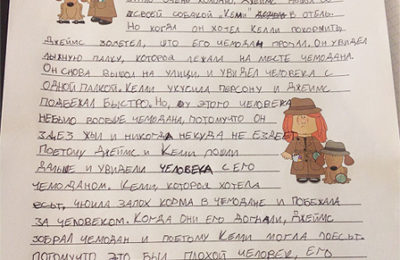 было очень холодно. Джеймс пошел со
своей собакой "Кеми" в отель.
Но когда он хотел Келли покормить,
Джеймс золетел, што его чемодан пропал. Он увидел
лыжную палку, которая лежали на месте чемодана.
Он снова вышол на улицы и увидел человека с
одной палкой. Келли укусила персону и Джеймс
подбежал быстро. Но, у этого человека
небыло вообше чемодана, потомучто он
здез жил и никогда некуда не ездеет.
Поетому Джеймс и Келли пошли
дальше и увидели человека с его
чемоданом. Кеми, которая хотела
есьт, учюила запох корма в чемодане и побежала
за человеком. Когда они его догнали, Джеймс
зобрал чемодан и поетому Кеми могла поесьт.
Потомучто это был плохой человек, его